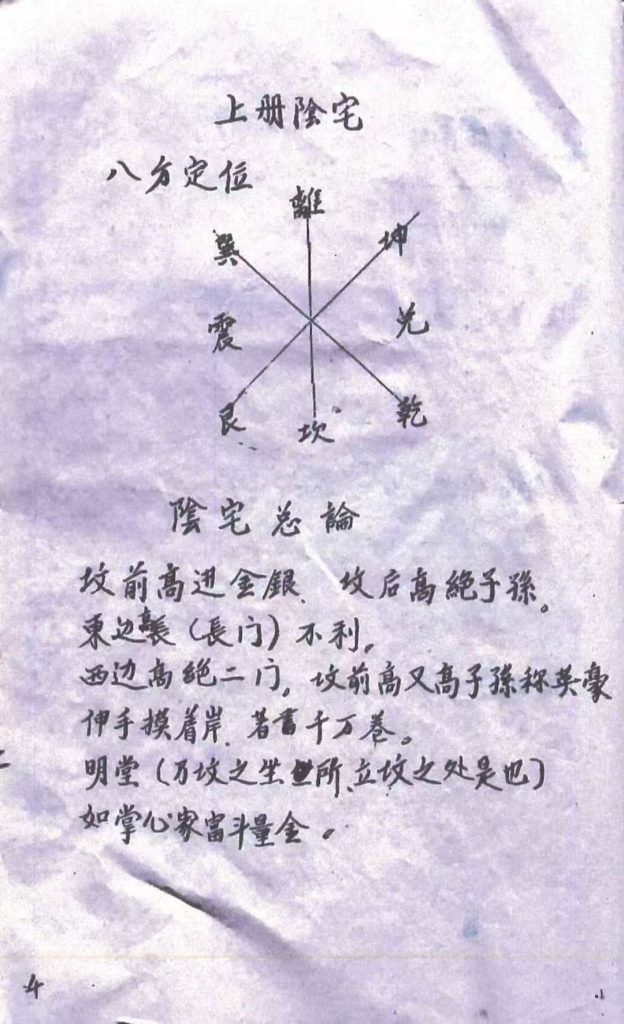 上册陰宅
八方定位
離
巽 坤
震 兑
艮 坎 乾
陰宅总論
坟前高进金銀、坟后高絕子孫。
東边高長(長门)不利,
西边高絕二门,坟前高又高子孫称英豪
伸手摸着岸、著書千万卷。
明堂(乃坟之坐所、立坟之处是也)
如掌心家富斗量金。
4
1